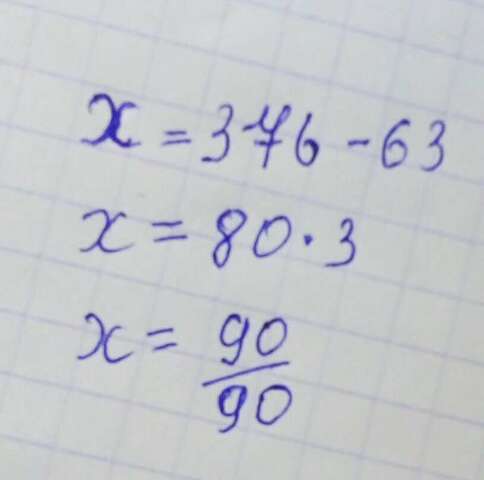 x = 376 - 63
x = 80 · 3
x = 90/90